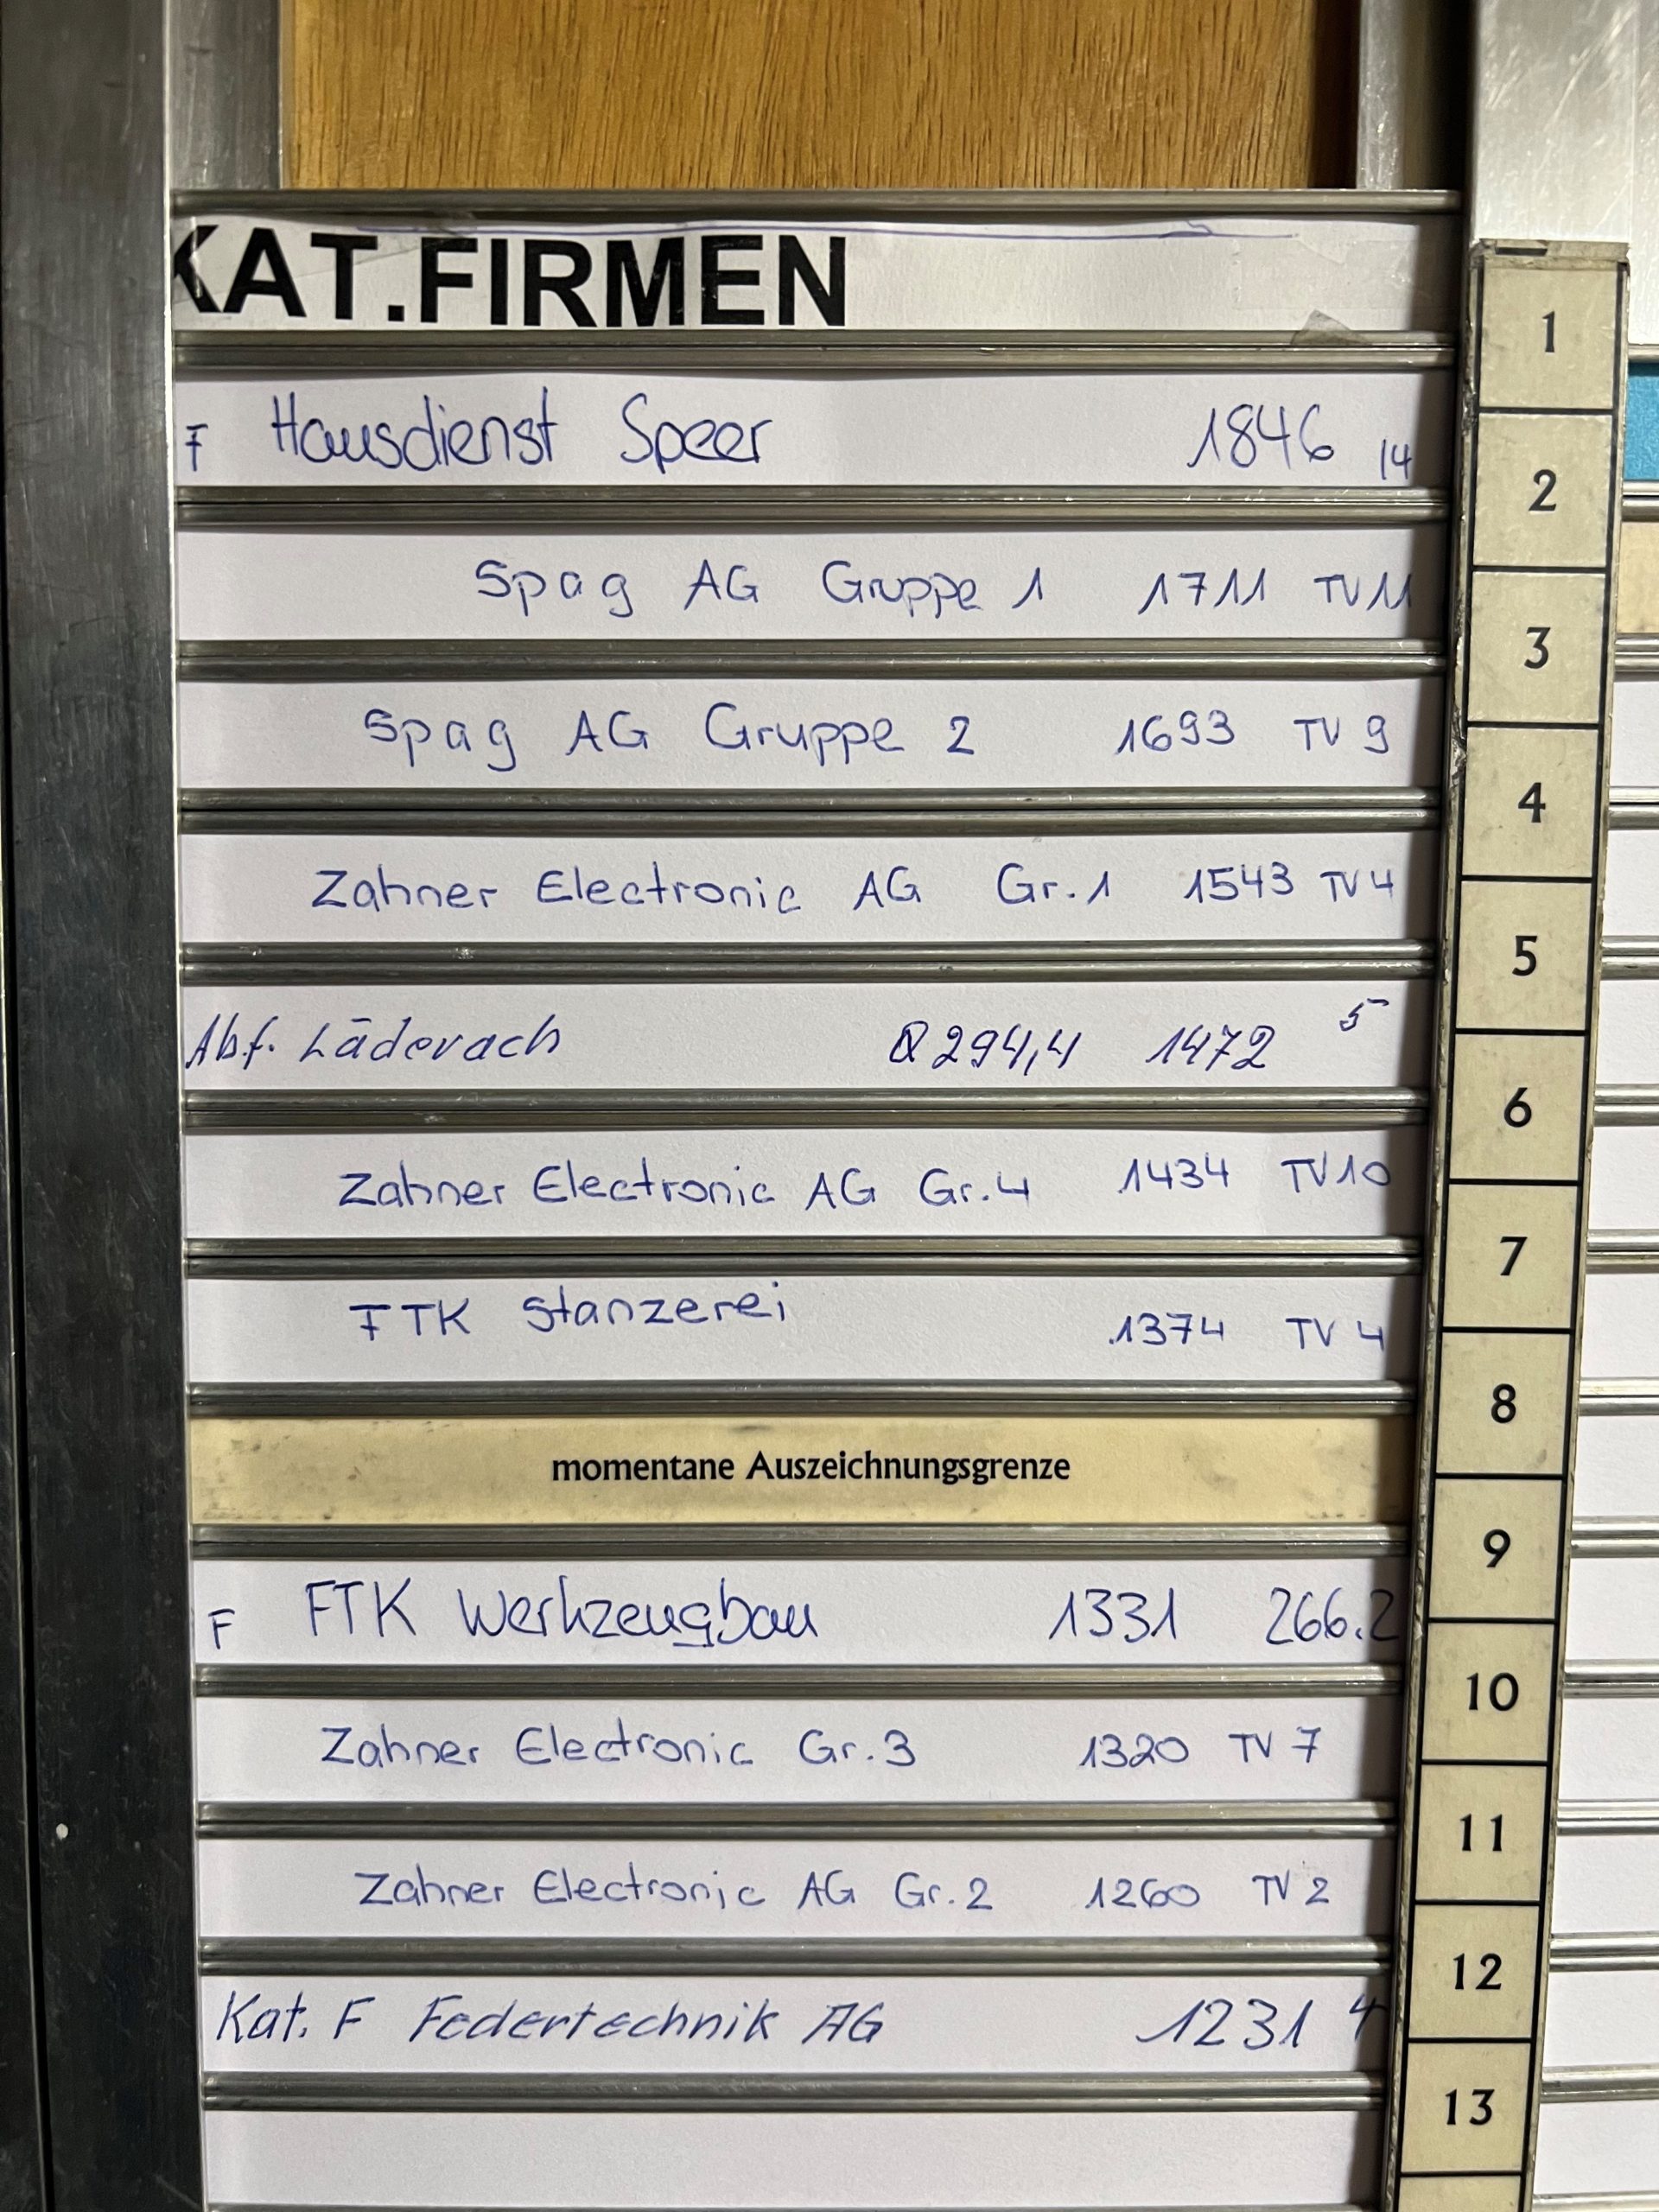 KAT.FIRMEN
1
F Hausdienst Speer 1846 14
2
Spag AG Gruppe 1 1711 TV 11
3
Spag AG Gruppe 2 1693 TV 9
4
Zahner Electronic AG Gr.1 1543 TV 4
5
Abf. Läderach Q 294,4 1472 5
6
Zahner Electronic AG Gr.4 1434 TV 10
7
FTK Stanzerei 1374 TV 4
8
momentane Auszeichnungsgrenze
9
F FTK Werkzeugbau 1331 266.2
10
Zahner Electronic Gr.3 1320 TV 7
11
Zahner Electronic AG Gr.2 1260 TV 2
12
Kat. F Federtechnik AG 1231 4
13